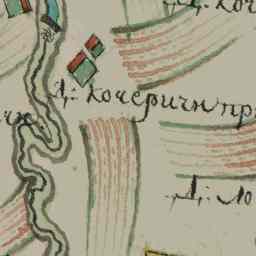 Д: коч
Д: кочеричи пр
чи
Д: ло